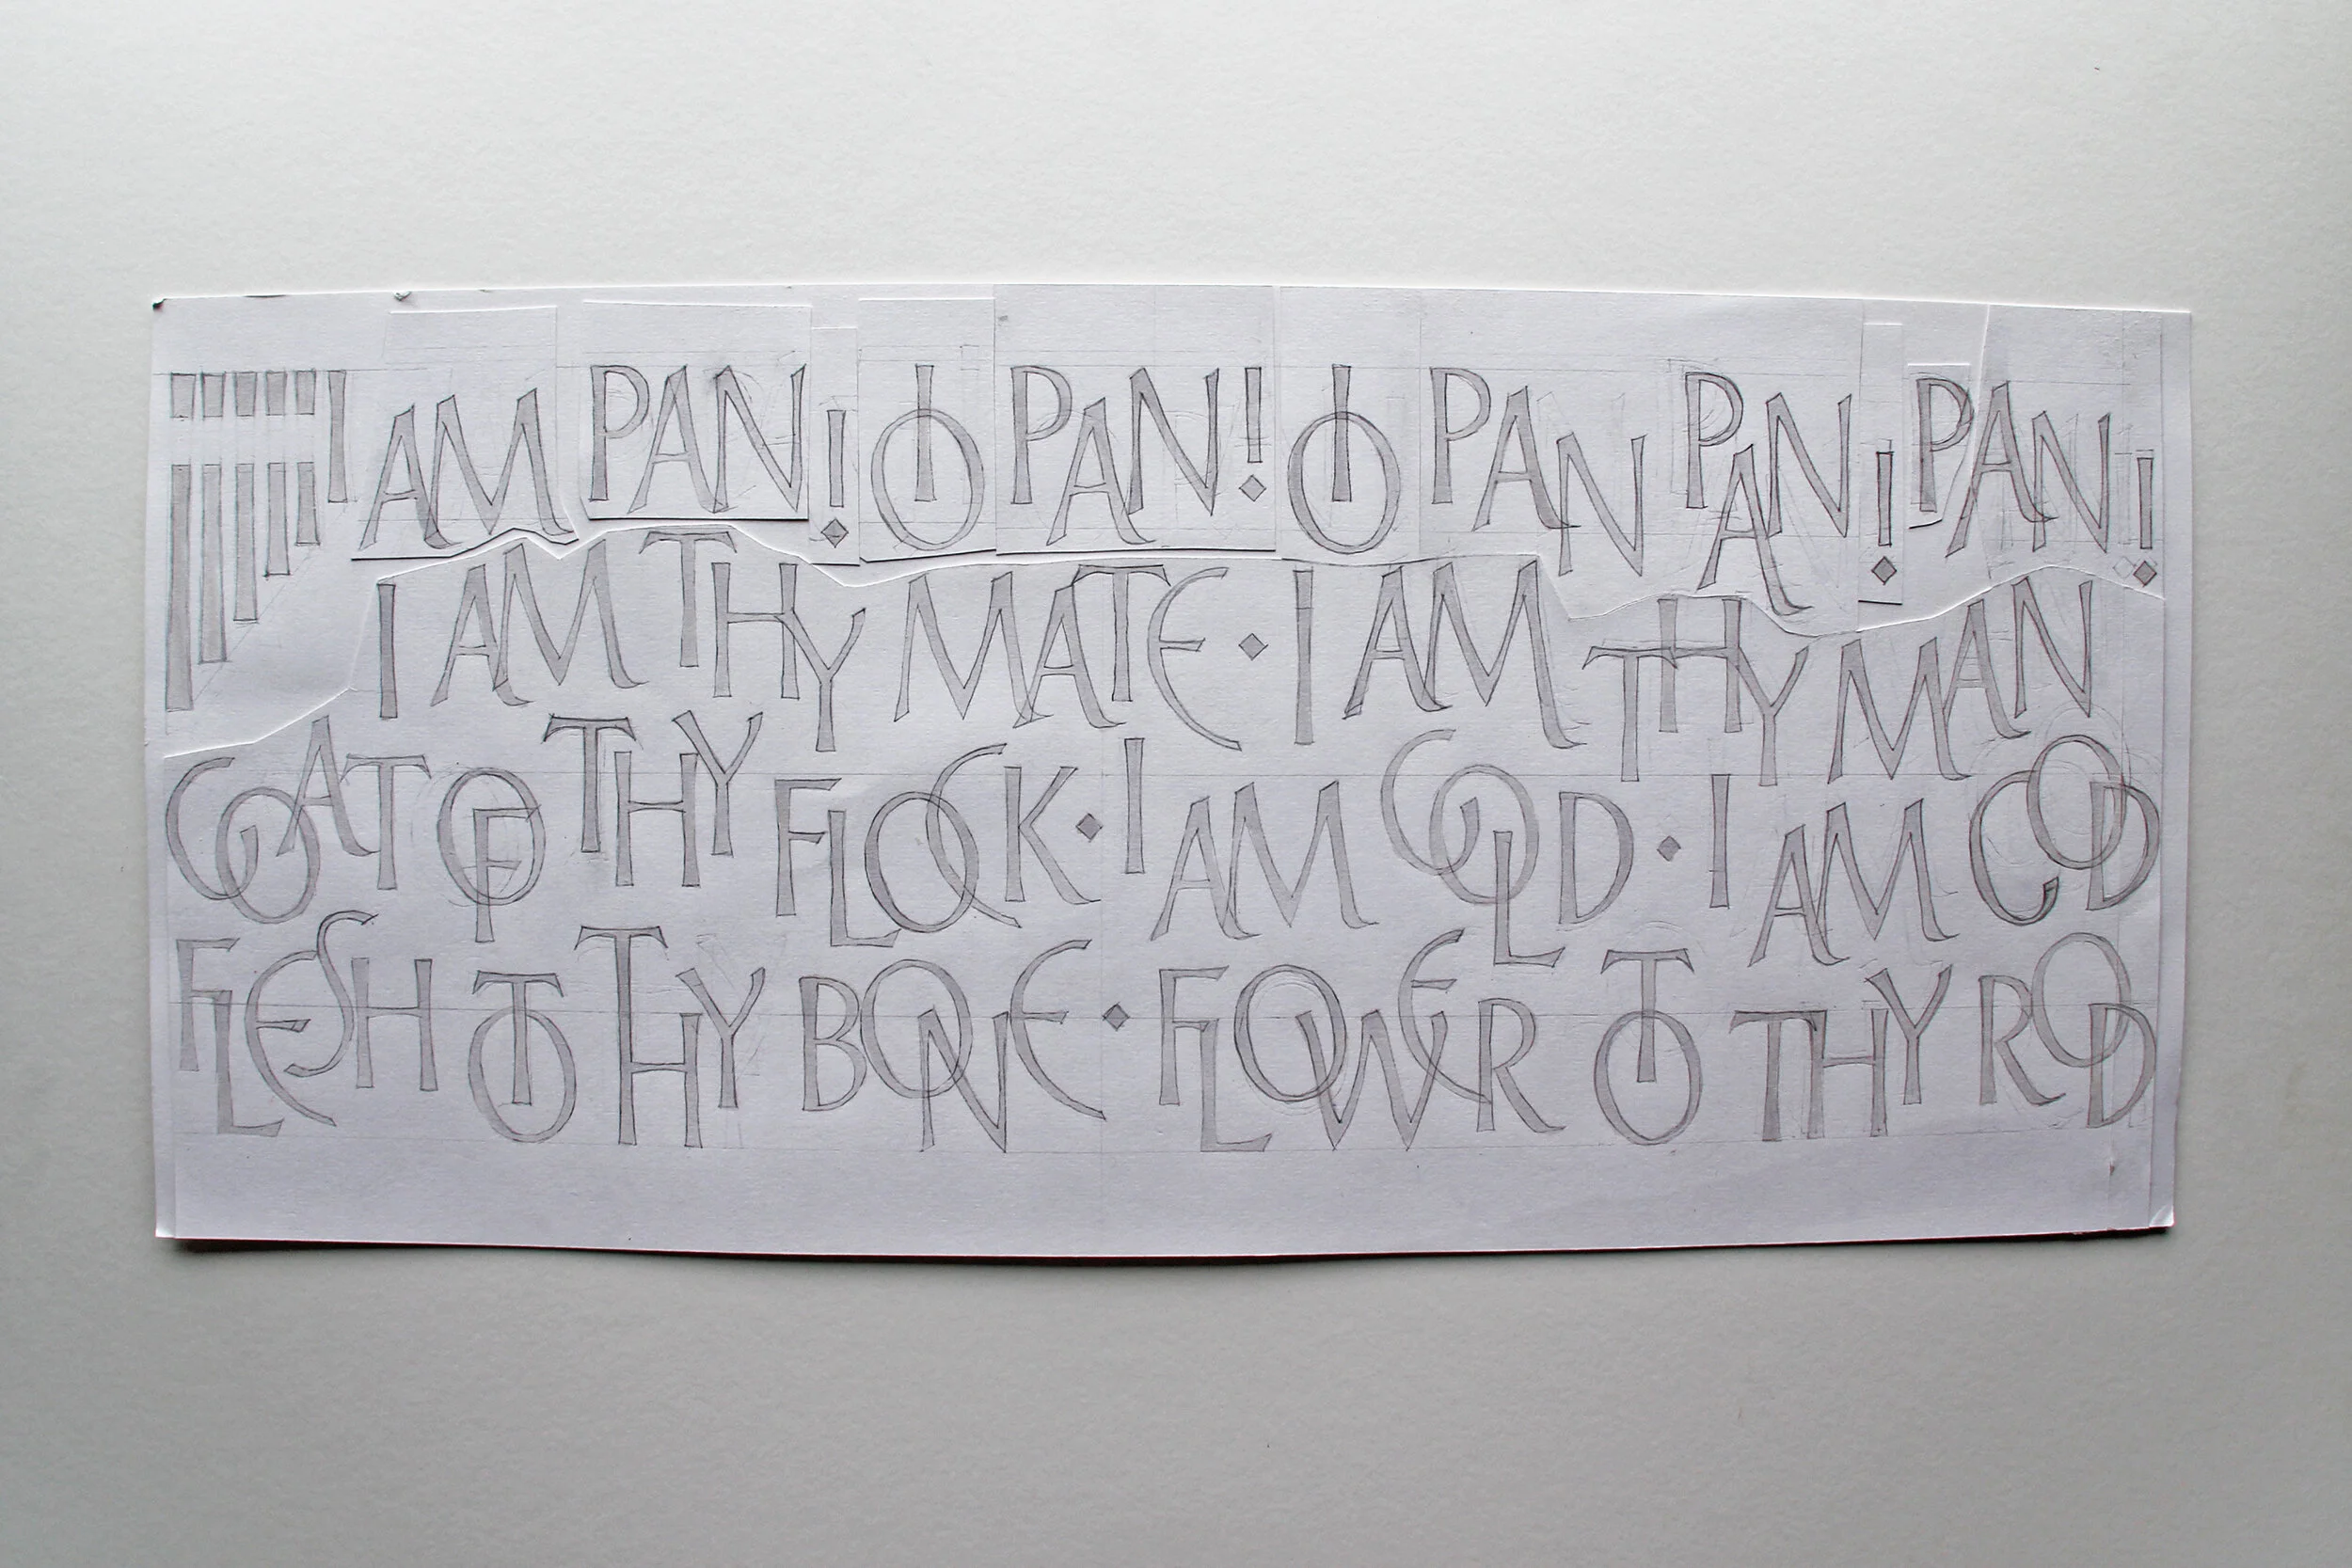 I AM PAN! IO PAN! IO PAN PAN! PAN!
I AM THY MATE · I AM THY MAN
GOAT OF THY FLOCK · I AM GOLD · I AM GOD
FLESH TO THY BONE · FLOWER TO THY ROD